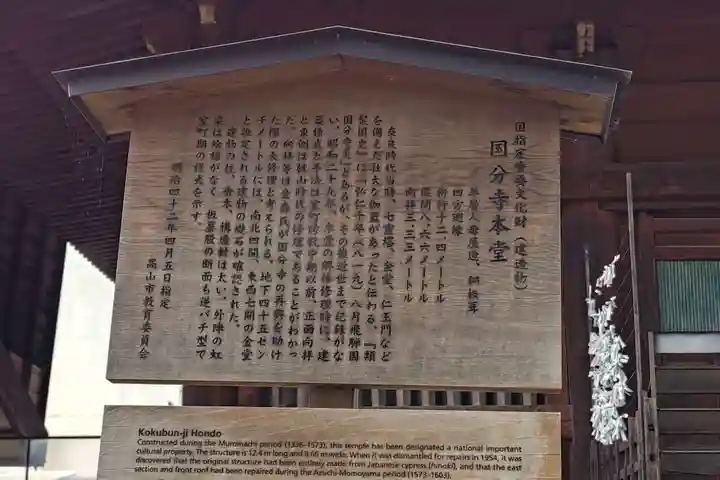 国指定重要文化財（建造物）
国分寺本堂
単層入母屋造、銅板葺
四方廻縁
桁行十二.四メートル
梁間八.六六メートル
向拝三.三メートル
奈良時代当時、七重塔、金堂、仁王門など
を備えた壮大な伽藍があったと伝わる。『類
聚国史』に「弘仁十年（八一九）八月飛騨国
国分寺災」とあるが、その後近世まで記録がな
い。昭和二十九年、本堂の解体修理時に、建
築様式と手法は室町時代中期以前、正面向拝
と東側は桃山時代の修理であることがわかっ
た。向拝等は金森氏が国分寺の再興を助け
た際の大修理と考えられる。地下四十五セン
チメートルには、南北四間、東西七間の金堂
と推定される建物の礎石が確認された。
建物の柱、台木、構造材は太い。外陣の虹
梁は絵様がなく、板蟇股の断面も逆バチ型で
室町期の様式を示す。
明治四十二年四月五日指定
高山市教育委員会
Kokubun-ji Hondo
Constructed during the Muromachi period (1336–1573), this temple has been designated a national important
cultural property. The structure is 12.4 m long and 8.66 m wide. When it was dismantled for repairs in 1954, it was
discovered that the original structure had been entirely made from Japanese cypress (hinoki), and that the east
section and front roof had been repaired during the Azuchi-Momoyama period (1573–1603).